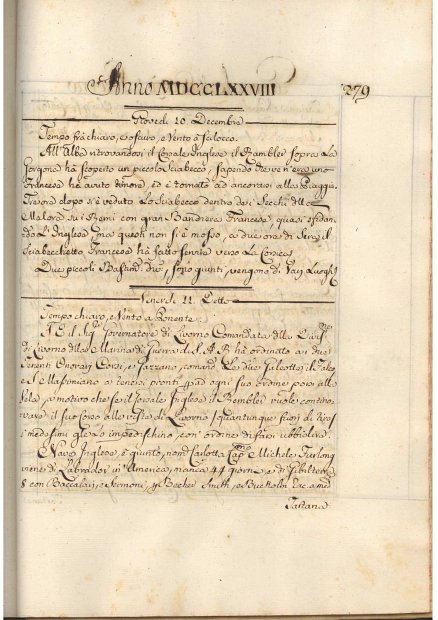 Anno MDCCLXXVIII
279
Giovedi 10. Decembre
Tempo frà chiaro, e oscuro, e Vento à scilocco.
All'Alba ritrovandosi il Corsale Inglese il Rambler sopra La
Gorgona hà scoperto un piccolo Sciabecco, sapendo che ve n'era uno
Francese hà avuto timore, ed è tornato ad ancorarsi alla Spiaggia
Tre ore dopo s'è veduto Lo Sciabecco dentro dei Secchi della
Malora sui Remi con gran Bandiera Francese, quasi sfidan-
do L'Inglese, mà questi non si è mosso, a due ora di Sera il
Sciabecchetto Francese hà fatto senno verso La Corsica
Due piccoli Bastim. div. sono giunti, vengono da Varj Luoghi
Venerdi 11. Detto
Tempo chiaro, e Vento à Ponente.
S. E. il Sig. Governatore di Livorno Comandate della
di Livorno della Marina di Guerra di S. A. R. hà ordinato ai due
Tenenti Onorarj Corsi, e Fazzano, comand. Le due Galeotte il
e S. Massimiano a tenersi pronti ad ogni suo ordine, porsi alla
Vela, a motivo che se il Corsale Inglese il Rambler vuole conti-
vare il suo Corso alla vista di Livorno quantunque fuori di
i medesimi glielo impedischino, con ordine di farsi ubbidire.
Nave Inglese, è giunto, nom. Carlotta Cap. Michele Furlong
viene di Labrador in America, manca 44 giorni, e di Gibilterra
8 con Baccalari, e Sermoni, Becher Smith, e
Tartana